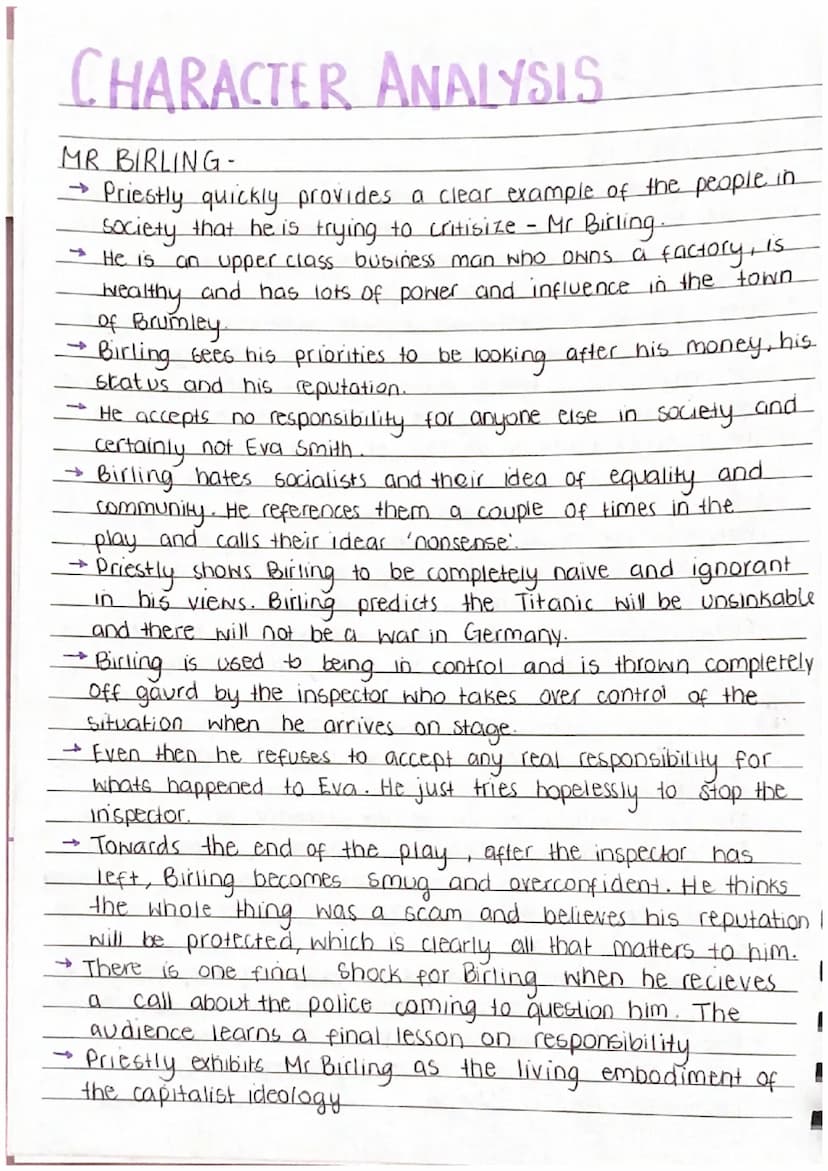 CHARACTER ANALYSIS
MR BIRLING -
→ Priestly quickly provides a clear example of the people in
society that he is trying to critisize - Mr Birling.
→ He is an upper class business man who owns a factory, is
wealthy and has lots of power and influence in the town
of Brumley.
→ Birling sees his priorities to be looking after his money, his
status and his reputation.
→ He accepts no responsibility for anyone else in society and
certainly not Eva Smith.
→ Birling hates socialists and their idea of equality and
community. He references them a couple of times in the
play and calls their idear 'nonsense'.
→ Priestly shows Birling to be completely naive and ignorant
in his views. Birling predicts the Titanic will be unsinkable
and there will not be a war in Germany.
→ Birling is used to being in control and is thrown completely
off gaurd by the inspector who takes over control of the
situation when he arrives on stage.
→ Even then he refuses to accept any real responsibility for
whats happened to Eva. He just tries hopelessly to stop the
inspector.
→ Towards the end of the play, after the inspector has
left, Birling becomes smug and overconfident. He thinks
the whole thing was a scam and believes his reputation
will be protected, which is clearly all that matters to him.
→ There is one final shock for Birling when he recieves
a call about the police coming to question him. The
audience learns a final lesson on responsibility
→ Priestly exhibits Mr Birling as the living embodiment of
the capitalist ideology